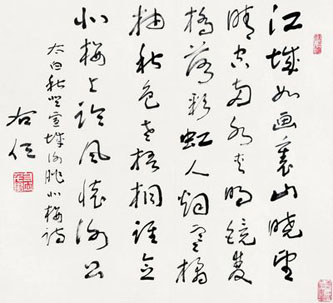 江城如畫裏山曉望
晴空兩水夾明鏡雙
橋落彩虹人烟寒橘
柚秋色老梧桐誰念
北樓上臨風懷謝公
太白秋登宣城謝朓北樓詩
右任